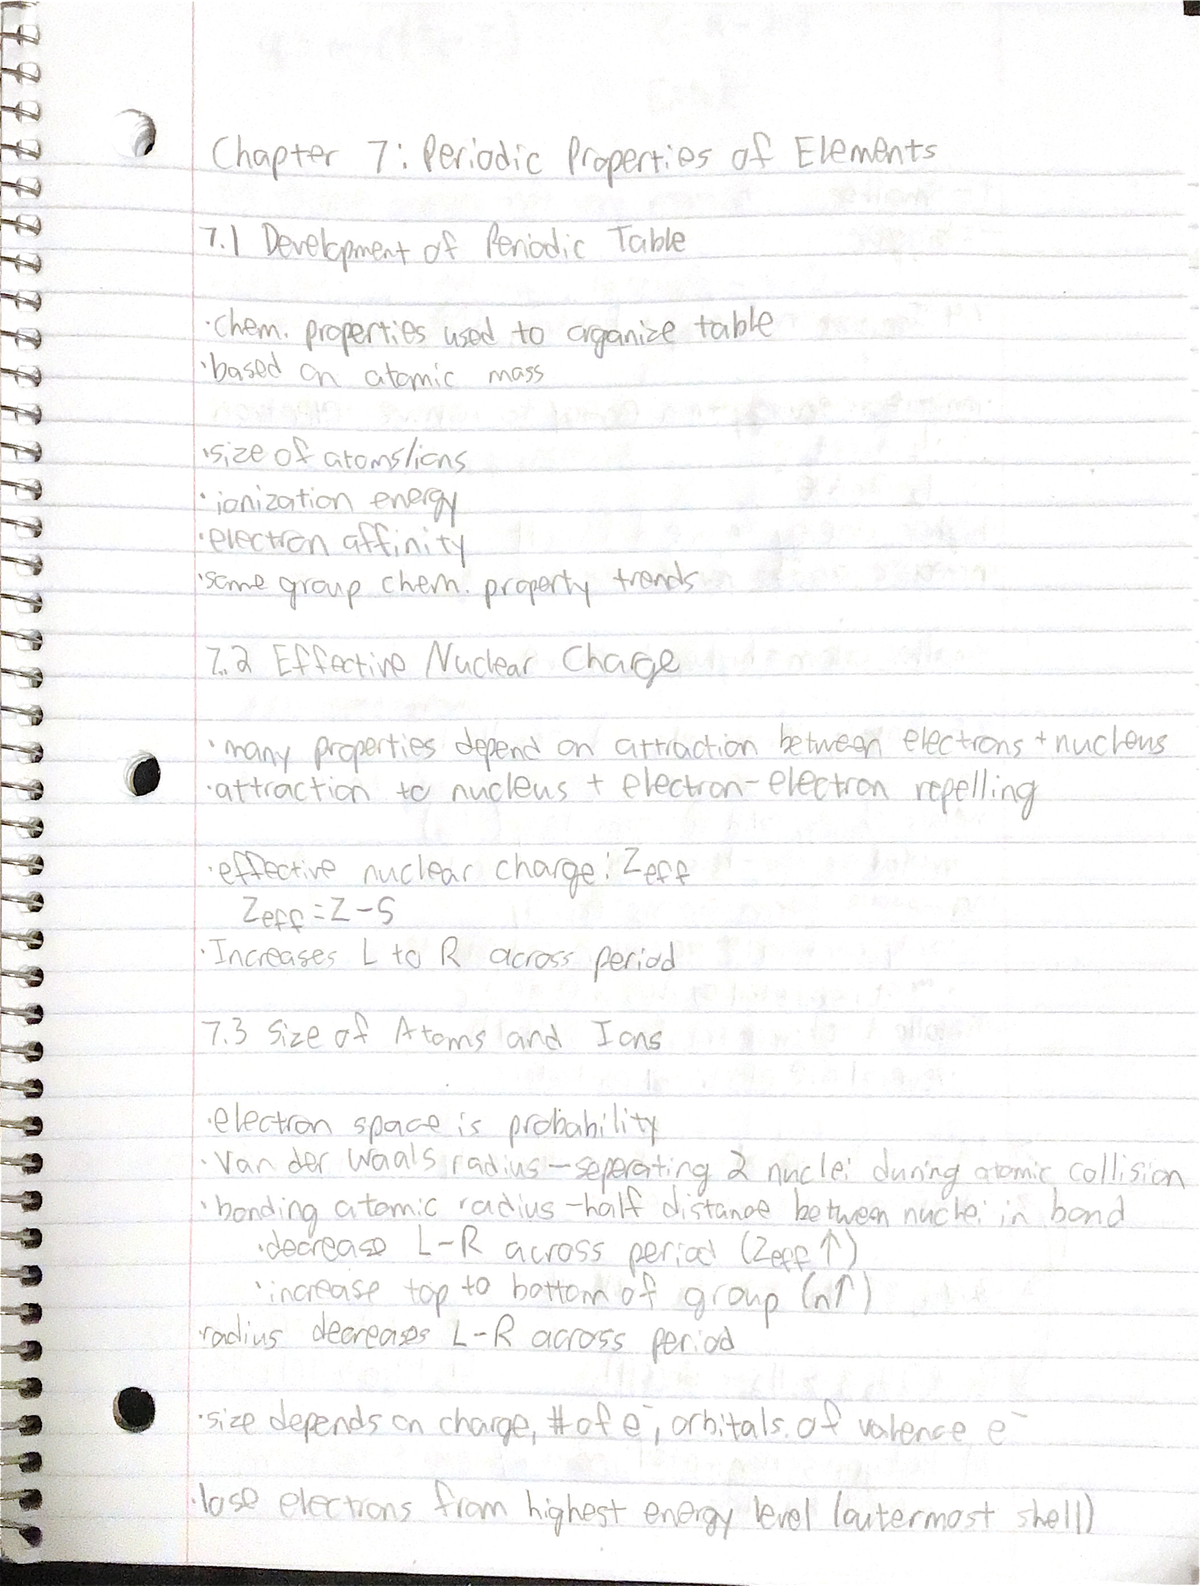 Chapter 7: Periodic Properties of Elements
7.1 Development of Periodic Table
·chem. properties used to organize table
·based on atomic mass
·size of atoms/ions
·ionization energy
·electron affinity
·same group chem. property trends
7.2 Effective Nuclear Charge
·many properties depend on attraction between electrons + nucleus
·attraction to nucleus + electron-electron repelling
·effective nuclear charge: Zeff
Zeff = Z - S
·Increases L to R across period
7.3 Size of Atoms and Ions
·electron space is probability
·Van der Waals radius - seperating 2 nuclei during atomic collision
·bonding atomic radius - half distance between nuclei in bond
·decrease L-R across period (Zeff ↑)
·increase top to bottom of group (n↑)
·radius decreases L-R across period
·size depends on charge, # of e⁻, orbitals of valence e⁻
·lose electrons from highest energy level (outermost shell)